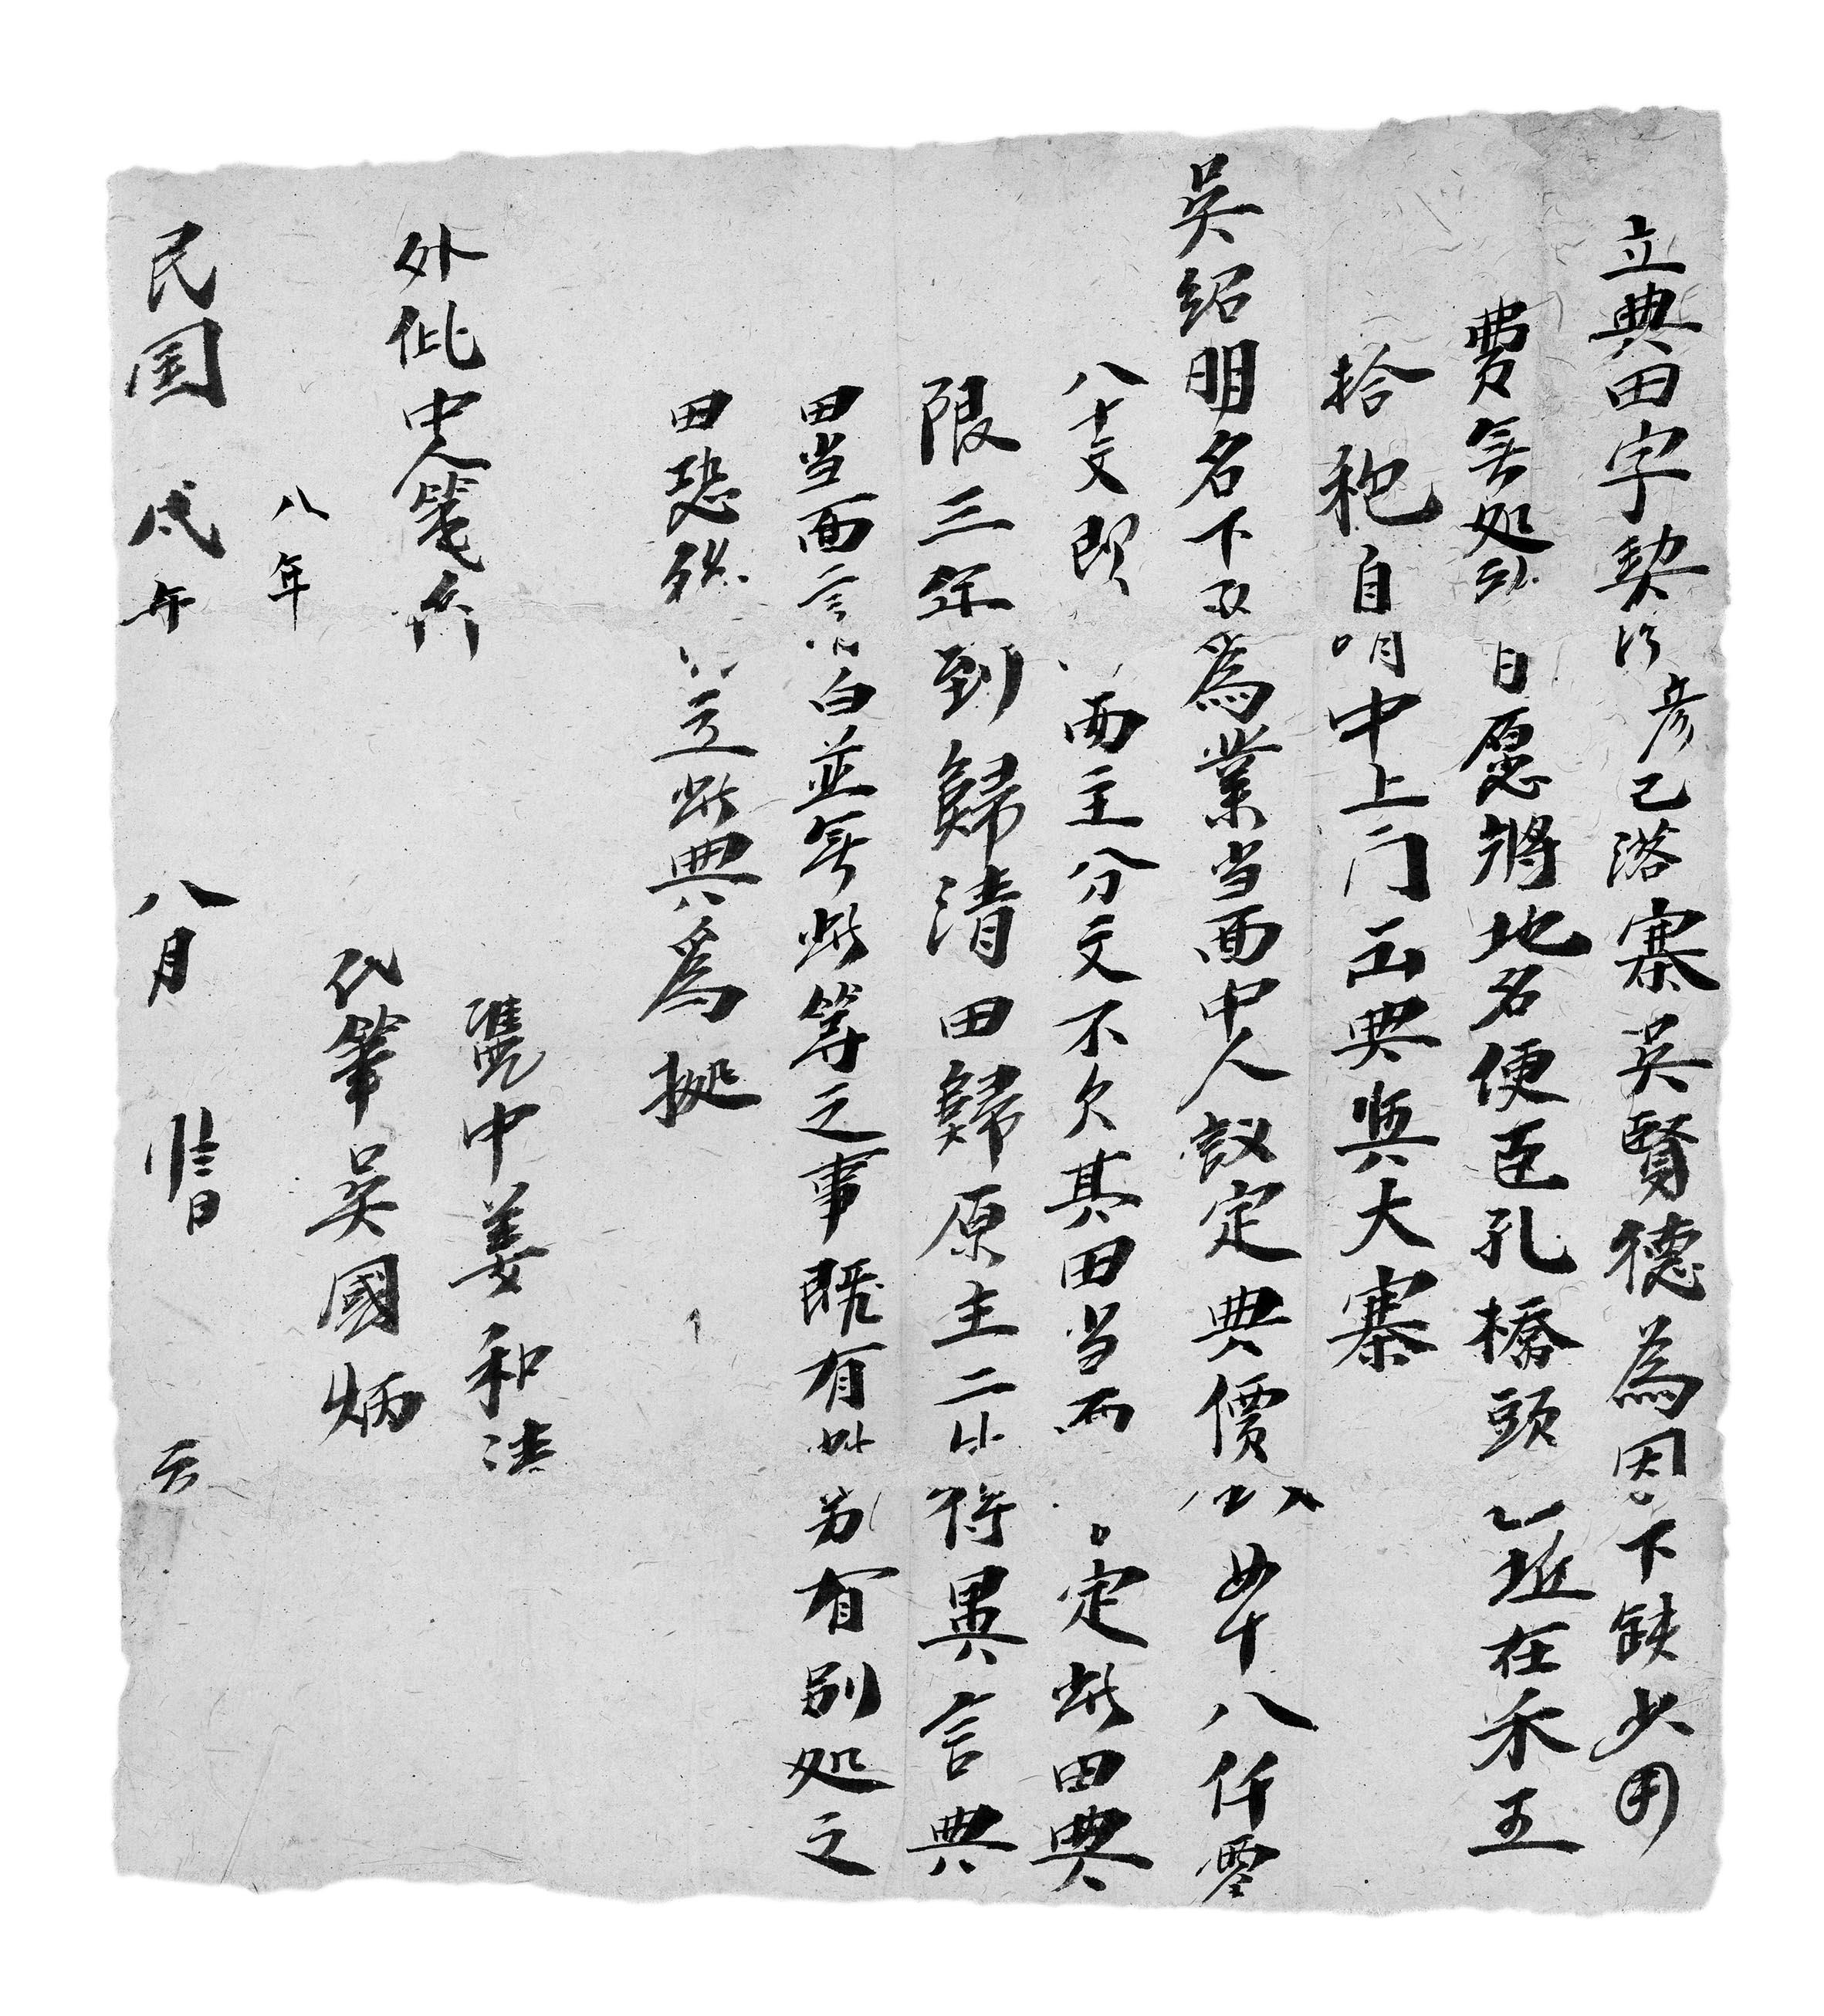 立典田字契彦己落寨吴賢德為因下缺少用
費無处出自愿將地名便臣孔橋頭乙坵在禾五
拾秅自明中上门出典與大寨
吴绍明名下為業当面中人議定典價八十八仟零
八十文即西主分文不欠其田当面定此田典
限三年到歸清田歸原主二比得異言典
田当面言白並無此等之事既有此另有别处之
田恐立此典爲拠
憑中姜和法
外批中人筆
代筆吴國炳
八年
民国年八月日立